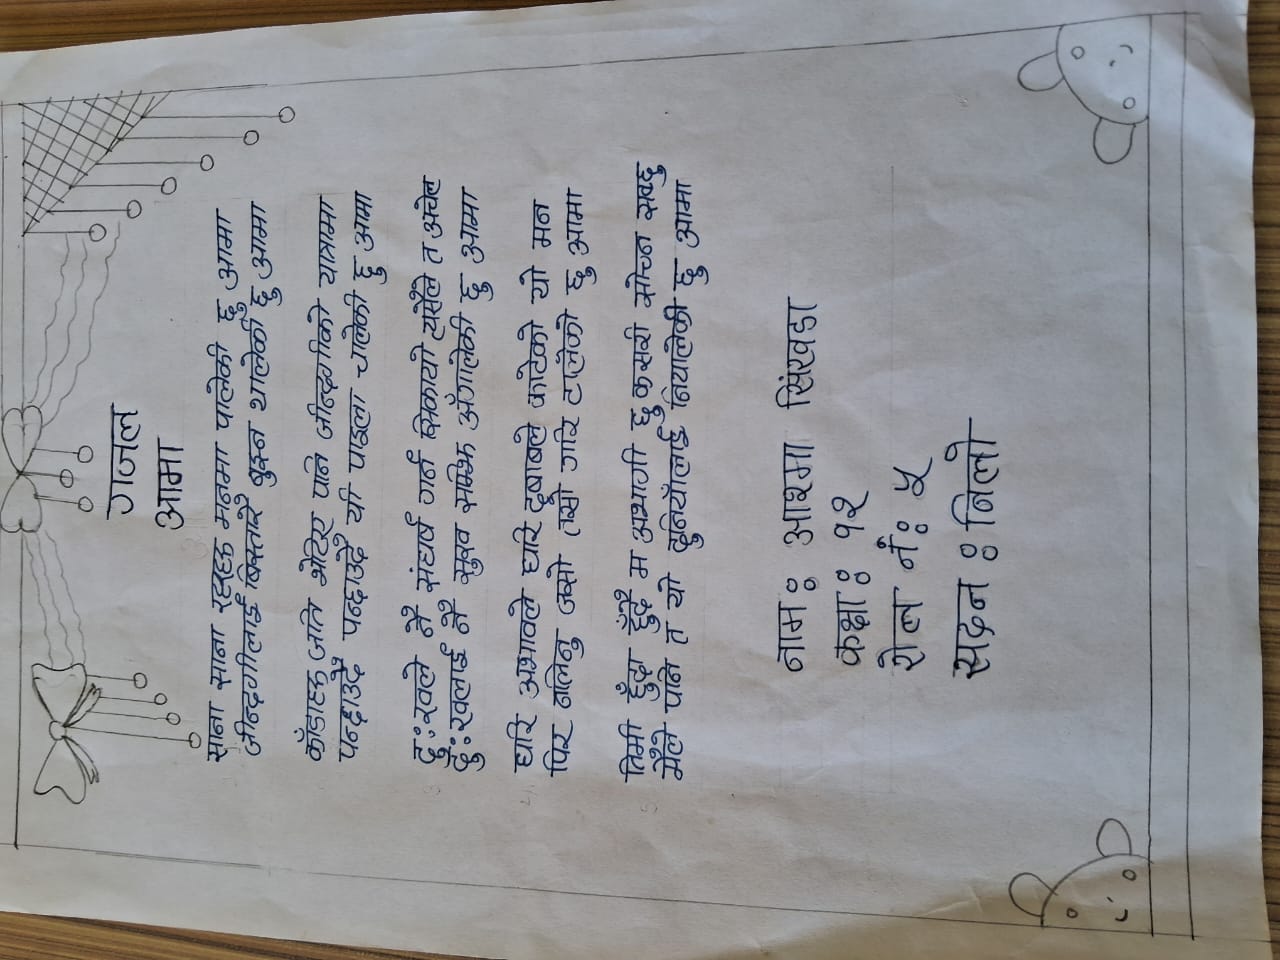 गजल
आमा
साना साना रहरहरू मनुमा पालेकी छु आमा
जीन्दगीलाई बिस्तारै बुझ्न थालेकी छु आमा
काँडाहरू जति भेटिए पनि जीन्दगीको यात्रामा
पन्छाउँदै पन्छाउँदै यी पाइला चालेकी छु आमा
दुःखले नै संघर्ष गर्न सिकायो त्यसैले त अचेल
दुःखलाई नै सुख सम्झि अँगालेकी छु आमा
घरि अभावले घरि दबाबले फाटेको यो मन
पिर नलिनु जसो तसो गरि टालेको छु आमा
तिमी हुँदा हुँदै म अभागी छु कसरी सोच्न सक्छु
मैले पनि त यो दुनियाँलाई नियालेकी छु आमा
नाम : आश्मा सिंखडा
कक्षा : १२
रोल नं : ५
सदन : निलो